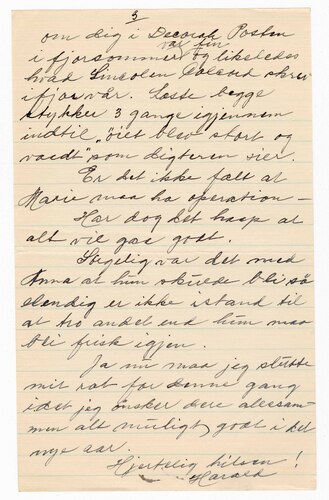 3
om dig i Decorah Posten
var fin
i fjorsommer og likeledes
hvad Lincolen Toland skrev
ifjor vår. Læste begge
stykker 3 gange igjennem
indtil "öiet blev stort og
vaadt" som digteren sier.
Er det ikke fælt at
Marie maa ha operation –
Har dog det haap at
alt vil gaa godt.
Sörgelig var det med
Anna at hun skulde bli så
elendig er ikke istand til
at tro andet end hun maa
bli frisk igjen.
Ja nu maa jeg slutte
mit rot for denne gang
idet jeg önsker dere allesam-
men alt muligt godt i det
nye aar.
Hjertelig hilsen!
Harald